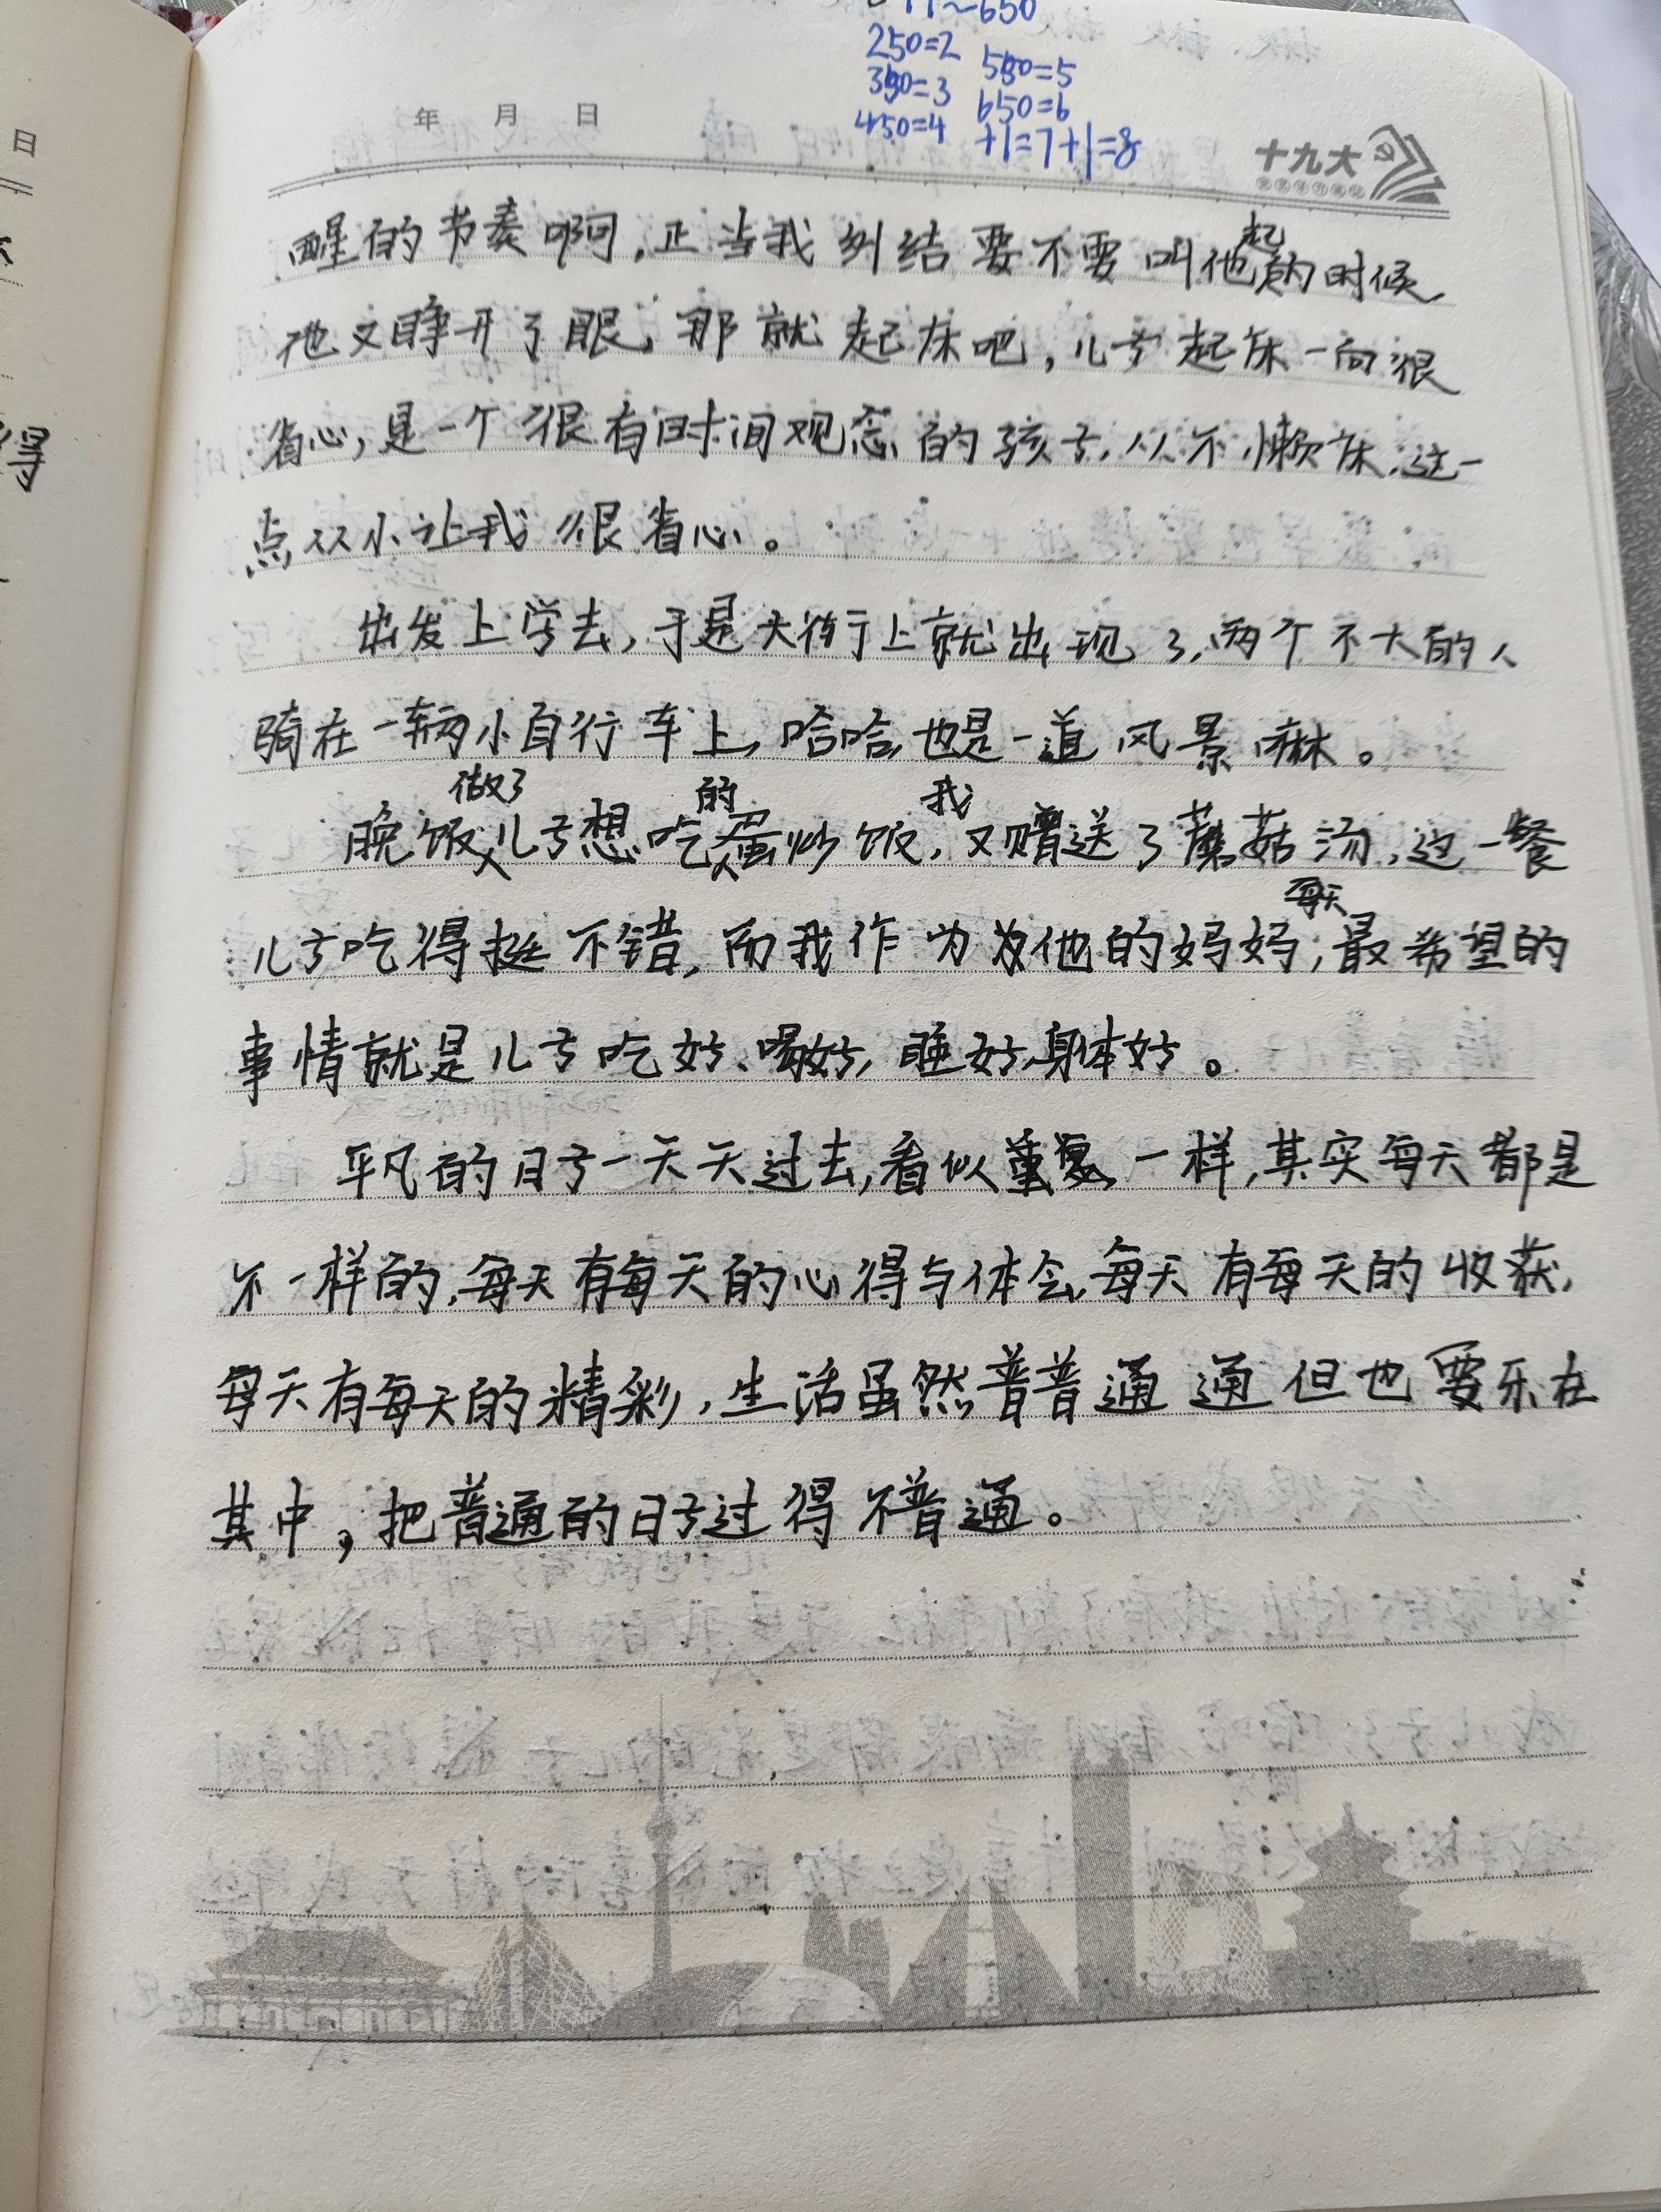 ~650
250=2 550=5
350=3 650=6
450=4 +1=7+1=8
年 月 日
十九大
日
得
醒的节奏啊,正当我纠结要不要叫他起的时候,
他又睁开了眼,那就起床吧,儿子起床一向很
省心,是一个很有时间观念的孩子,从不懒床,这一
点从小让我很省心。
出发上学去,于是大街上就出现了,两个不大的人
骑在一辆小自行车上,哈哈,也是一道风景嘛。
晚饭做了儿子想吃的蛋炒饭,我又赠送了蘑菇汤,这一餐
儿子吃得挺不错,而我作为为他的妈妈,每天最希望的
事情就是儿子吃好、喝好,睡好,身体好。
平凡的日子一天天过去,看似重复一样,其实每天都是
不一样的,每天有每天的心得与体会,每天有每天的收获,
每天有每天的精彩,生活虽然普普通通但也要乐在
其中,把普通的日子过得不普通。